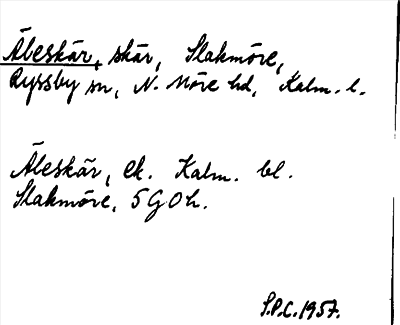 Äleskär, skär, Slakmöre,
Ryssby sn, N. Möre hd, Kalm. l.
Äleskär, ek. Kalm. bl.
Slakmöre, 5 G O h.
S.P.C. 1957.